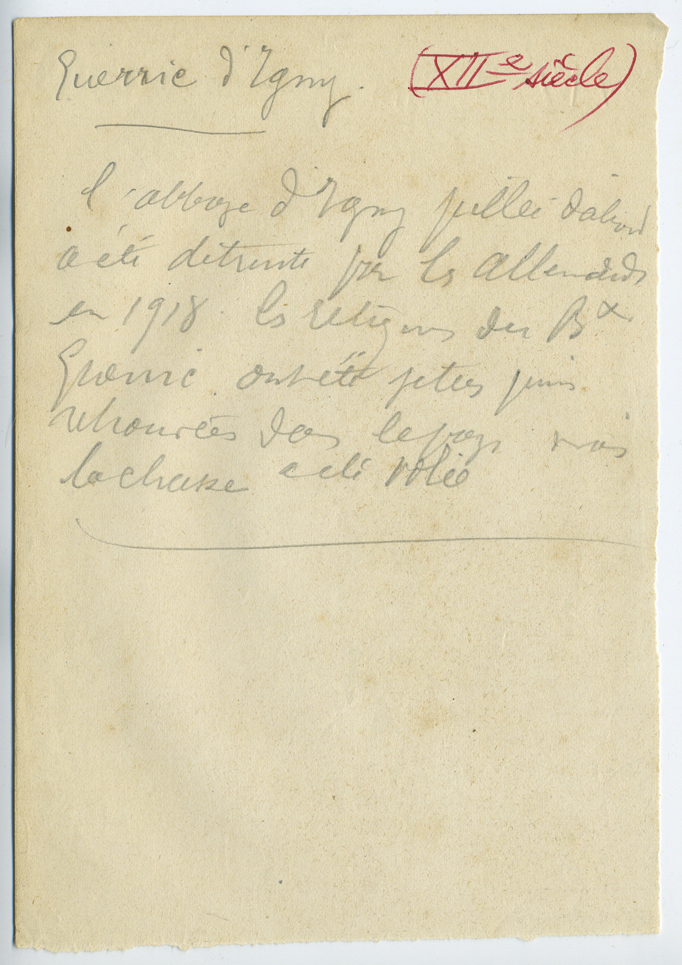 Guerric d'Igny. (XIIe siècle)
l'abbaye d'Igny pillée d'abord
a été détruite par les Allemands
en 1918. les reliques du Bx
Guerric ont été jetées puis
retrouvées dans le pays mais
la chasse a été volée